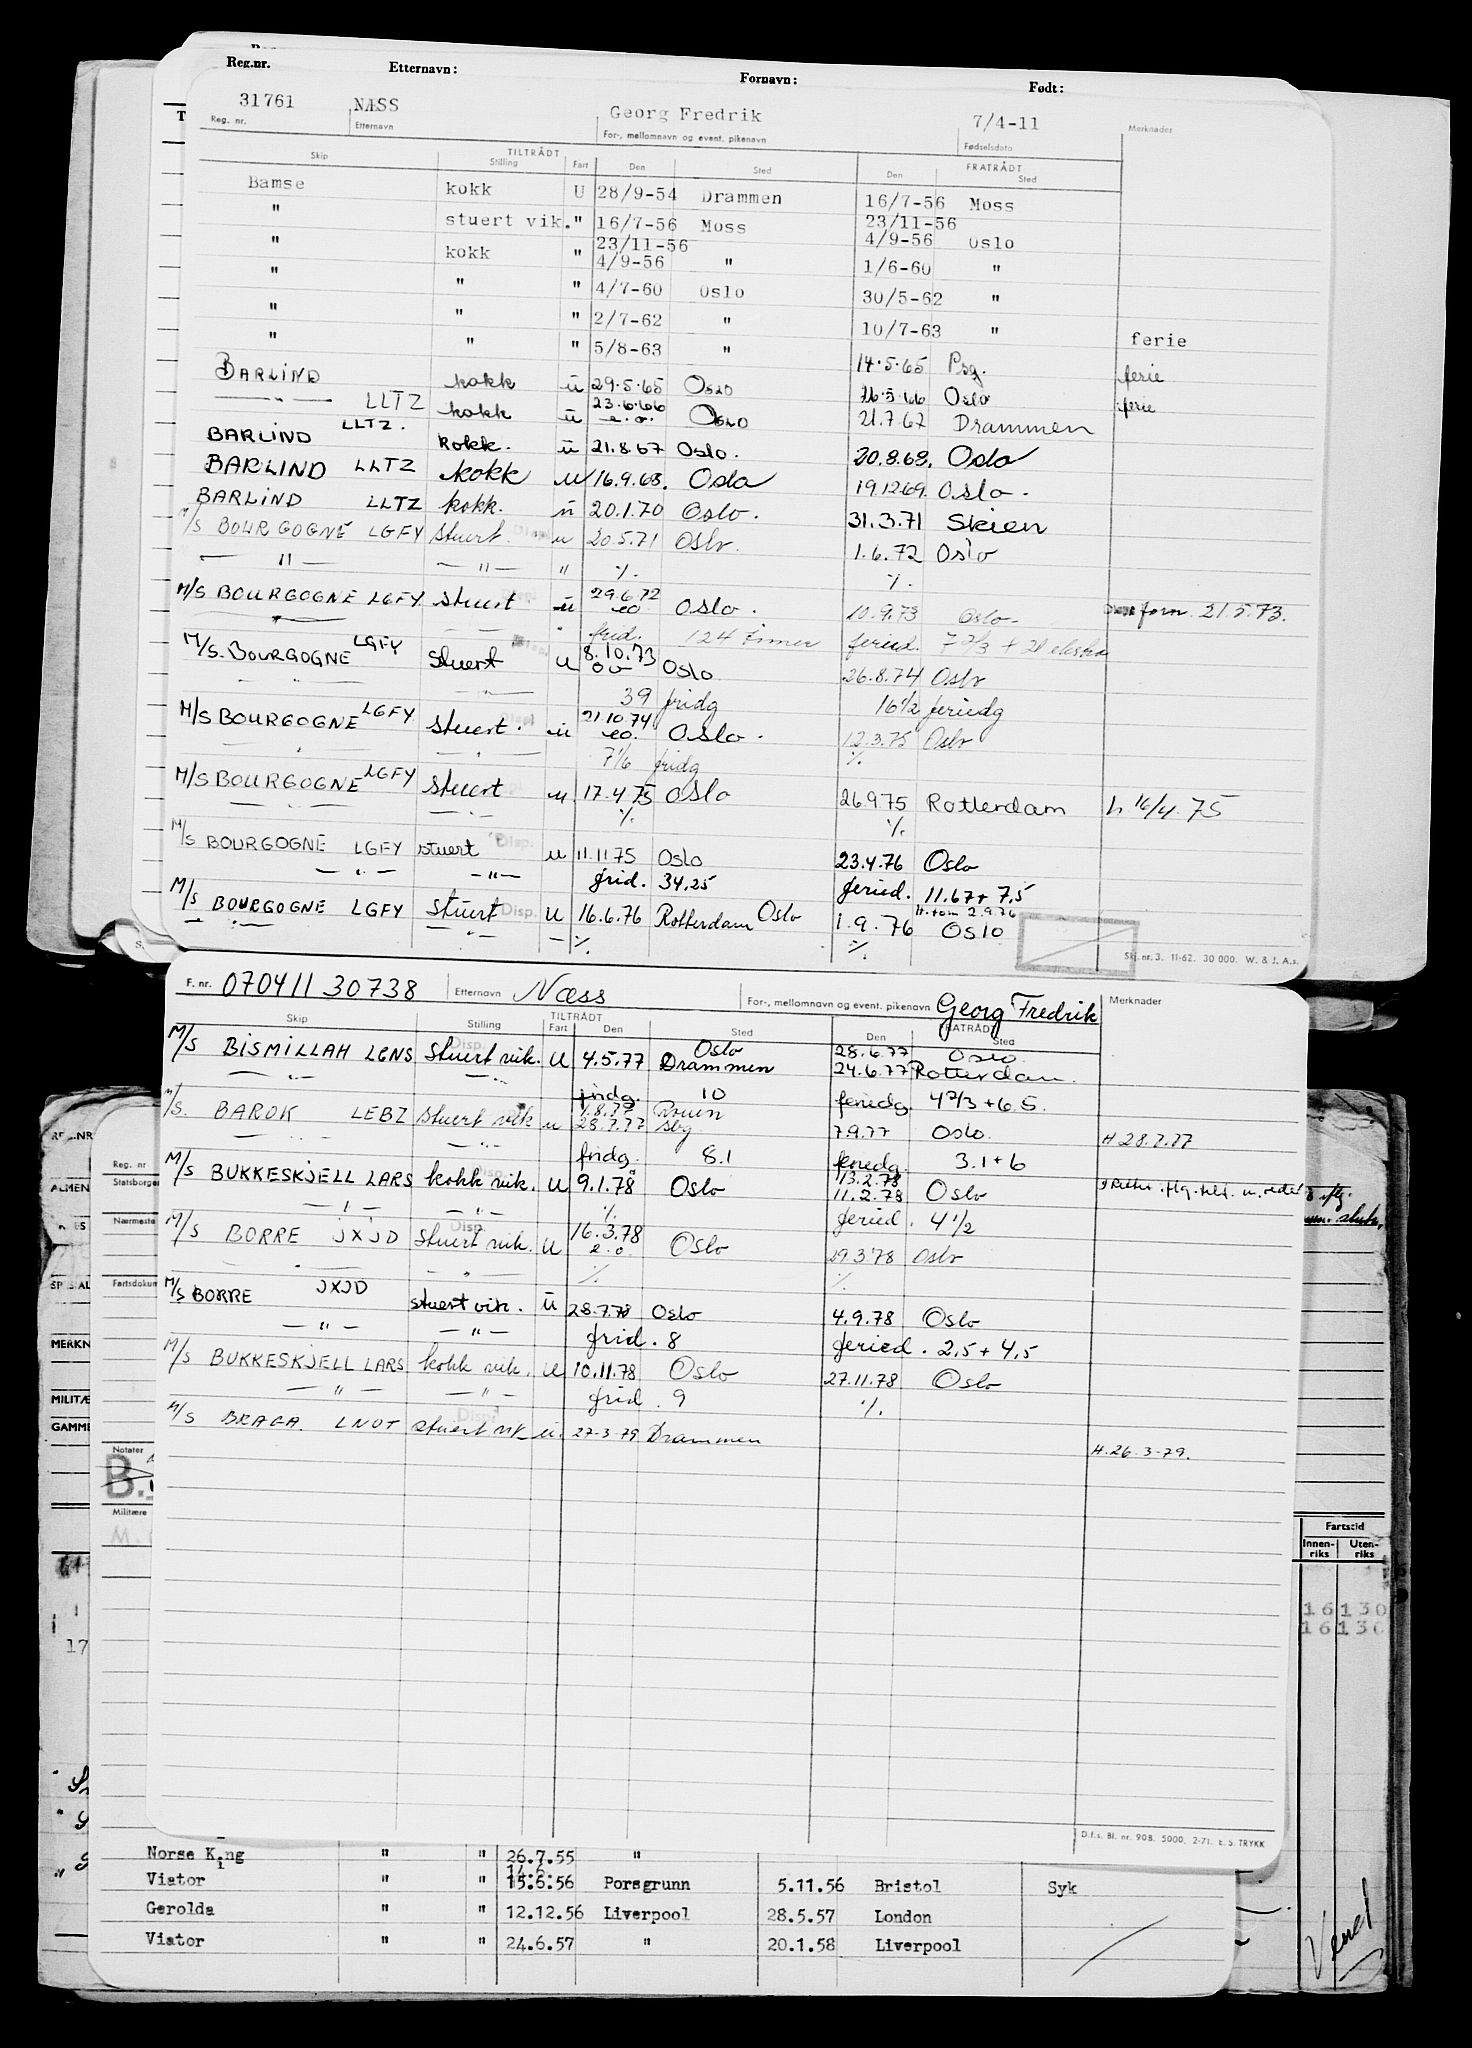 Reg.nr. Etternavn: Fornavn: Født:
31761 NÆSS Georg Fredrik 7/4-11
Reg. nr. Etternavn For-, mellomnavn og event. pikenavn Fødselsdato Merknader
TILTRÅDT FRATRÅDT
Skip Stilling Fart Den Sted Den Sted
Bamse kokk U 28/9-54 Drammen 16/7-56 Moss
" stuert vik. " 16/7-56 Moss 23/11-56
23/11-56 4/9-56 Oslo
" kokk " 4/9-56 " 1/6-60 "
" " " 4/7-60 Oslo 30/5-62 "
" " " 2/7-62 " 10/7-63 " ferie
" " " 5/8-63 " 14.5.65 Psg. ferie
BARLIND kokk u 29.5.65 Oslo 26.5.66 Oslo ferie
— " — LLTZ kokk u 23.6.66 e.o. Oslo 21.7.67 Drammen
BARLIND LLTZ. kokk. u 21.8.67 Oslo. 20.8.68. Oslo
BARLIND LLTZ kokk u 16.9.68. Oslo 19.12.69. Oslo.
BARLIND LLTZ kokk. u 20.1.70 Oslo. 31.3.71 Skien
M/S BOURGOGNE LGFY stuert. Disp. u 20.5.71 Oslo. 1.6.72 Oslo
— " — — " — " ./. ./.
M/S BOURGOGNE LGFY stuert u 29.6.72 eo Oslo. 10.9.73 Oslo. forn. 21.5.73.
frid. 124 timer feried. 7 2/3 + 21 ekstra
M/S. BOURGOGNE LGFY stuert u 8.10.73 Oslo 26.8.74 Oslo
39 fridg 16 1/2 feriedg
M/S BOURGOGNE LGFY stuert. u 21.10.74 eo. Oslo. 12.3.75 Oslo
7 1/6 fridg ./.
M/S BOURGOGNE LGFY stuert u 17.4.75 Oslo 26.9.75 Rotterdam h 16/4.75
— " — — " — ./. ./.
M/S BOURGOGNE LGFY stuert Disp. u 11.11.75 Oslo 23.4.76 Oslo
— " — — " — frid. 34,25 feried. 11.67 + 7,5
M/S BOURGOGNE LGFY stuert Disp. u 16.6.76 Rotterdam Oslo 1.9.76 H. tom 2.9.76 Oslo
— " — — " — — ./. ./.
Skj. nr. 3. 11-62. 30 000. W. & J. A.s.
F. nr. 070411 30738 Etternavn Næss For-, mellomnavn og event. pikenavn Georg Fredrik Merknader
TILTRÅDT FRATRÅDT
Skip Stilling Fart Den Sted Den Sted
M/S BISMILLAH LGNS Stuert vik. Disp. U 4.5.77 Oslo Drammen 28.6.77 Oslo
24.6.77 Rotterdam.
— " — — " — fridg. 10 feriedg. 4 2/3 + 6.5.
M/S. BAROK LEBZ stuert vik u 1.8.77 Rouen
28.7.77 Sbg. 7.9.77 Oslo. H 28.7.77
— " — — " — fridg. 8.1 feriedg. 3.1 + 6
M/S BUKKESKJELL LARS kokk vik. U 9.1.78 Oslo 13.2.78
11.2.78 Oslo
— " — — " — ./. feried. 4 1/2
M/S BORRE JXJD stuert vik. Disp. U 16.3.78 e.o. Oslo 29.3.78 Oslo
" " ./. ./.
M/S BORRE JXJD stuert vik. u 28.7.78 Oslo 4.9.78 Oslo
— " — — " — frid. 8 feried. 2,5 + 4,5
M/S BUKKESKJELL LARS kokk vik. U 10.11.78 Oslo 27.11.78 Oslo
— " — — " — frid. 9 ./.
M/S BRAGA. LNOT stuert vik u. 27-3-79 Drammen H. 26.3-79.
D.f.s. Bl. nr. 908. 5000. 2-71. E. S. TRYKK
Reg. nr
Statsborger
Nærmeste
Fartsdokum
Notater
Militære
REG.NR
ALMEN
SPESIAL
MERKN
MILITÆ
GAMME
17
Fartstid
Innen-riks Uten-riks
16 130
16 130
Norse King " " 26.7.55 "
14.6.
Viator " " 15.6.56 Porsgrunn 5.11.56 Bristol Syk
Gerolda " " 12.12.56 Liverpool 28.5.57 London
Viator " " 24.6.57 " 20.1.58 Liverpool